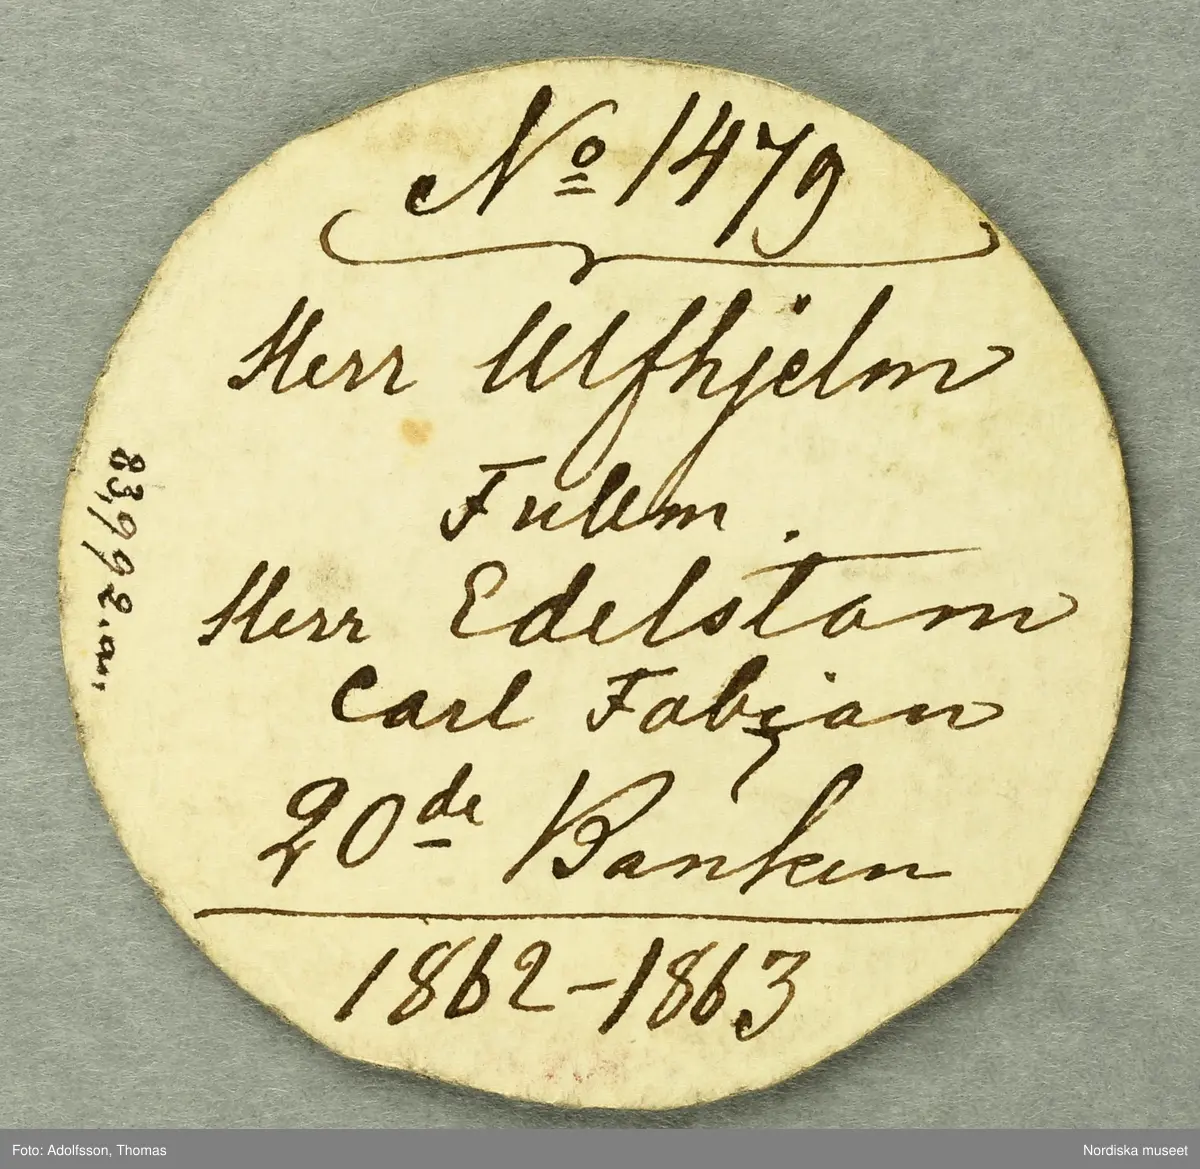 No 1479
Herr Ulfhjelm
Fullm.
Herr Edelstam
Carl Fabian
20de Banken
1862-1863
83,992.a.
Foto: Adolfsson, Thomas
Nordiska museet